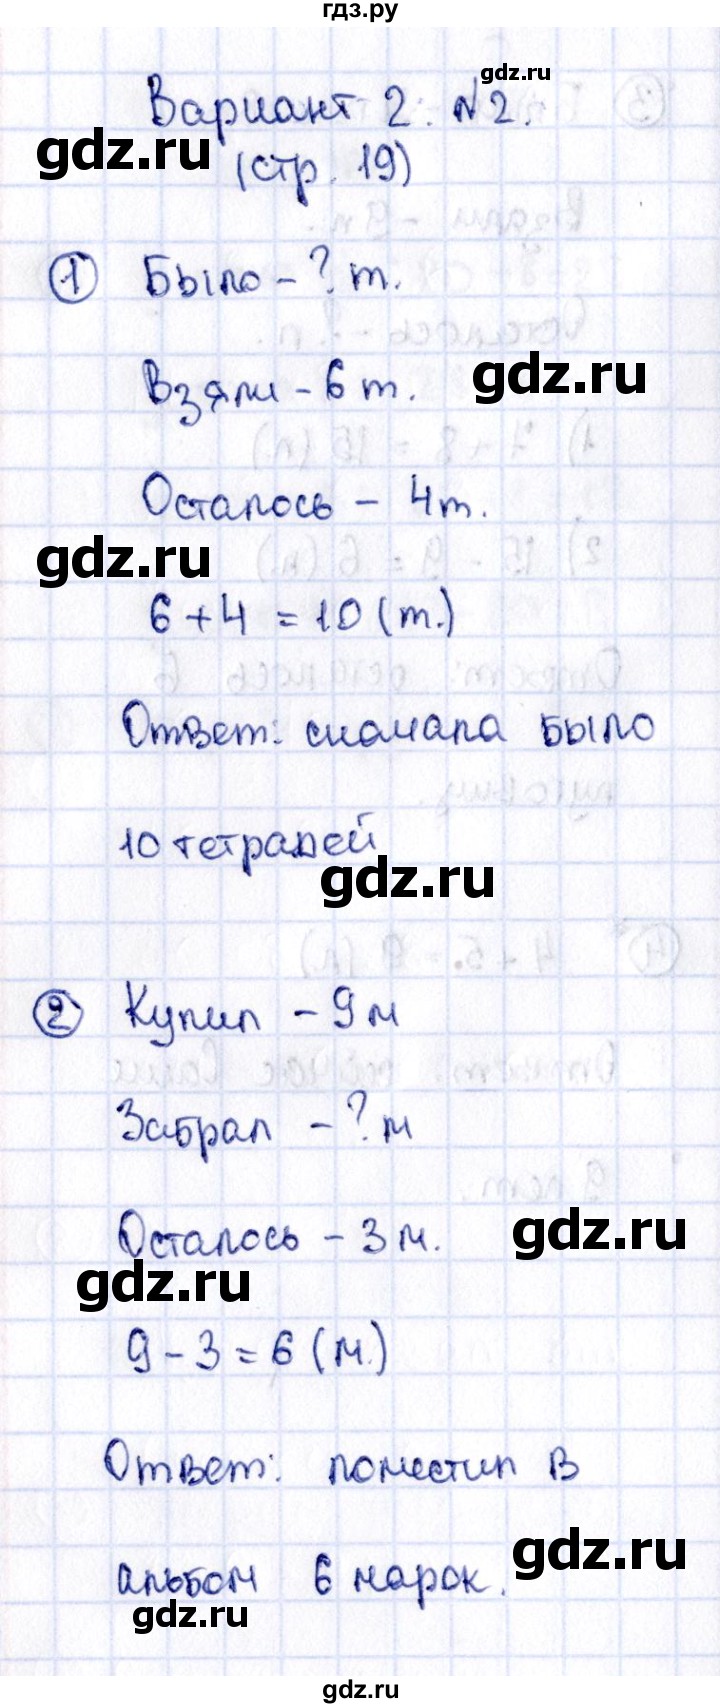 гдз.ру
gdz.ru
Вариант 2. №2.
gdz.ru
(стр. 19)
① Было - ? т.
gdz.ru
Взяли - 6 т.
Осталось - 4 т.
gdz.ru
6 + 4 = 10 (т.)
Ответ: сначала было
10 тетрадей
gdz.ru
② Купил - 9 м
Забрал - ? м
Осталось - 3 м.
gdz.ru
gdz.ru
9 - 3 = 6 (м.)
Ответ: поместил в
gdz.ru
альбом 6 марок.
gdz.ru
гдз.ру